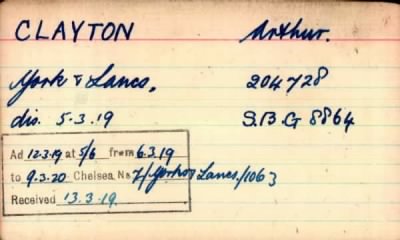 CLAYTON Arthur.
York & Lancs, 204728
dis. 5.3.19 S.B.G 8864
Ad 12.3.19 at 5/6 from 6.3.19
to 9.3.20 Chelsea No 7/York & Lancs/1063
Received 13.3.19.